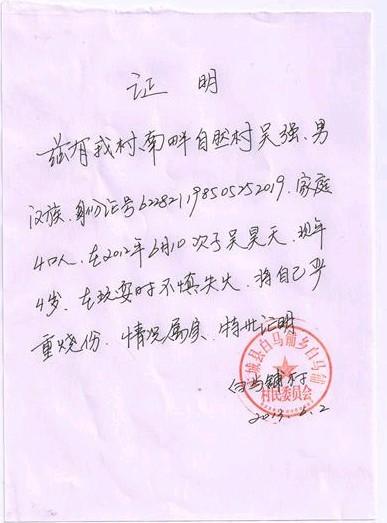 证明
兹有我村南畔自然村吴强、男
汉族、身份证号622821198505252019、家庭
4口人、在2012年6月10次子吴昊天、现年
4岁、在玩耍时不慎失火、将自己严
重烧份、情况属实、特此证明
城县白马铺乡白马铺
村民委员会
白马铺村
2013.6.2